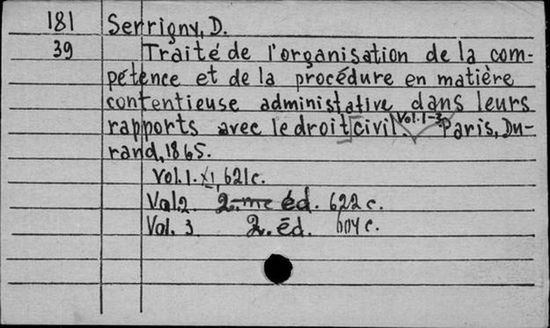 181 Serrigny, D.
39 Traité de l'organisation de la com-
pétence et de la procédure en matière
contentieuse administative dans leurs
rapports avec le droit civil. Vol. 1-3 Paris, Du-
rand, 1865.
Vol. 1. XI, 621 c.
Vol. 2 2-me éd. 622 c.
Vol. 3 2. éd. 604 c.